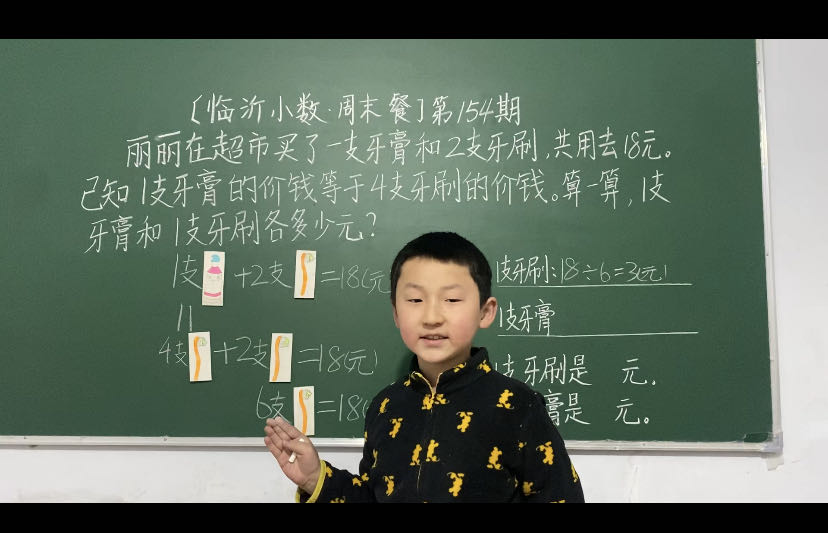 〔临沂小数·周末餐〕第154期
丽丽在超市买了一支牙膏和2支牙刷,共用去18元。
已知1支牙膏的价钱等于4支牙刷的价钱。算一算,1支
牙膏和1支牙刷各多少元?
1支 +2支 =18(元
4支 +2支 =18(元)
6支 =18(
1支牙刷:18÷6=3(元)
1支牙膏
支牙刷是 元。
膏是 元。